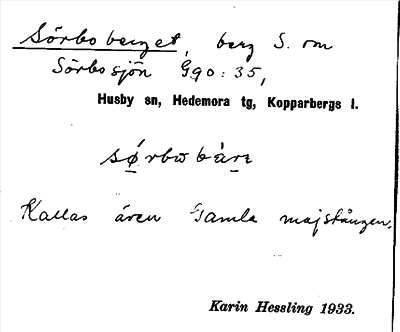 Sörbo berget, berg S. om
Sörbosjön Ggo: 35,
Husby sn, Hedemora tg, Kopparbergs l.
sø̱rbω bàre̱
Kallas även Gamla majstången.
Karin Hessling 1933.